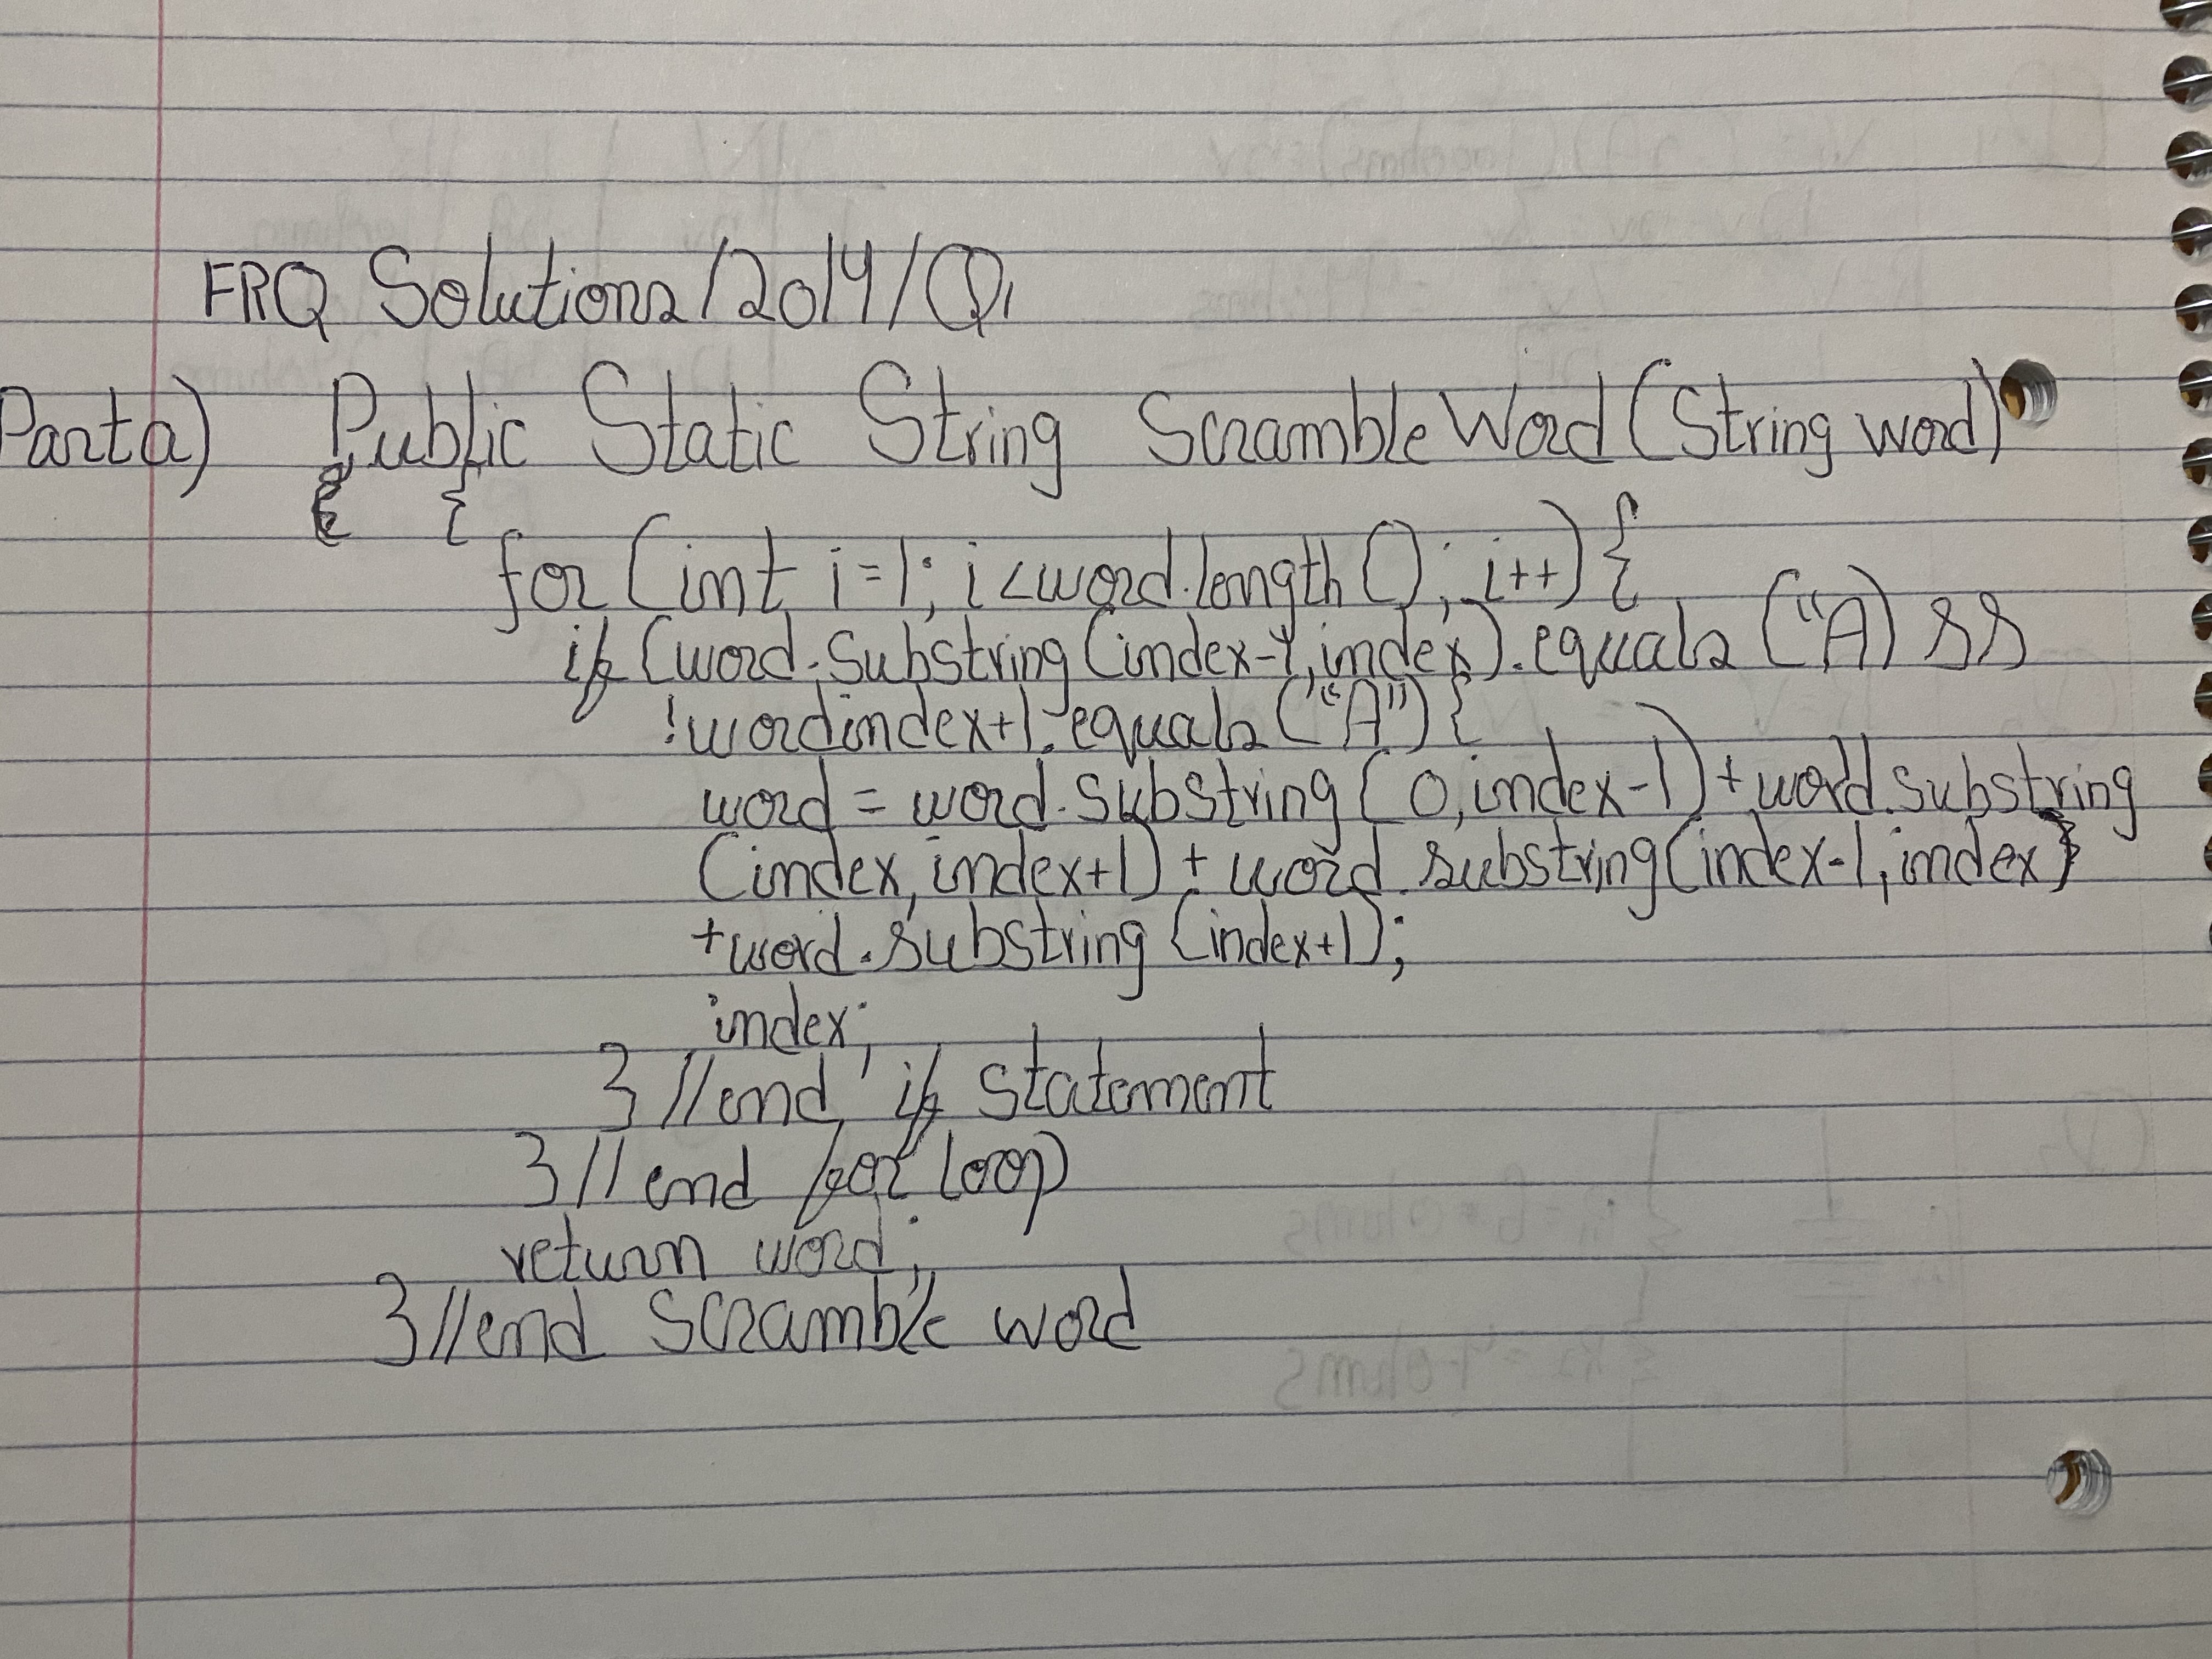 FRQ Solutions/2014/Q1
Part a) Public Static String ScrambleWord (String word)
{
for (int i=1; i<word.length(); i++) {
if (word.substring(index-1, index).equals ("A) &&
!wordindex+1.equals ("A") {
word = word.substring(0, index-1) + word.substring
(index, index+1) + word.substring(index-1, index)
+word.substring (index+1);
index;
} //end if statement
} // end for loop
return word;
} //end scramble word